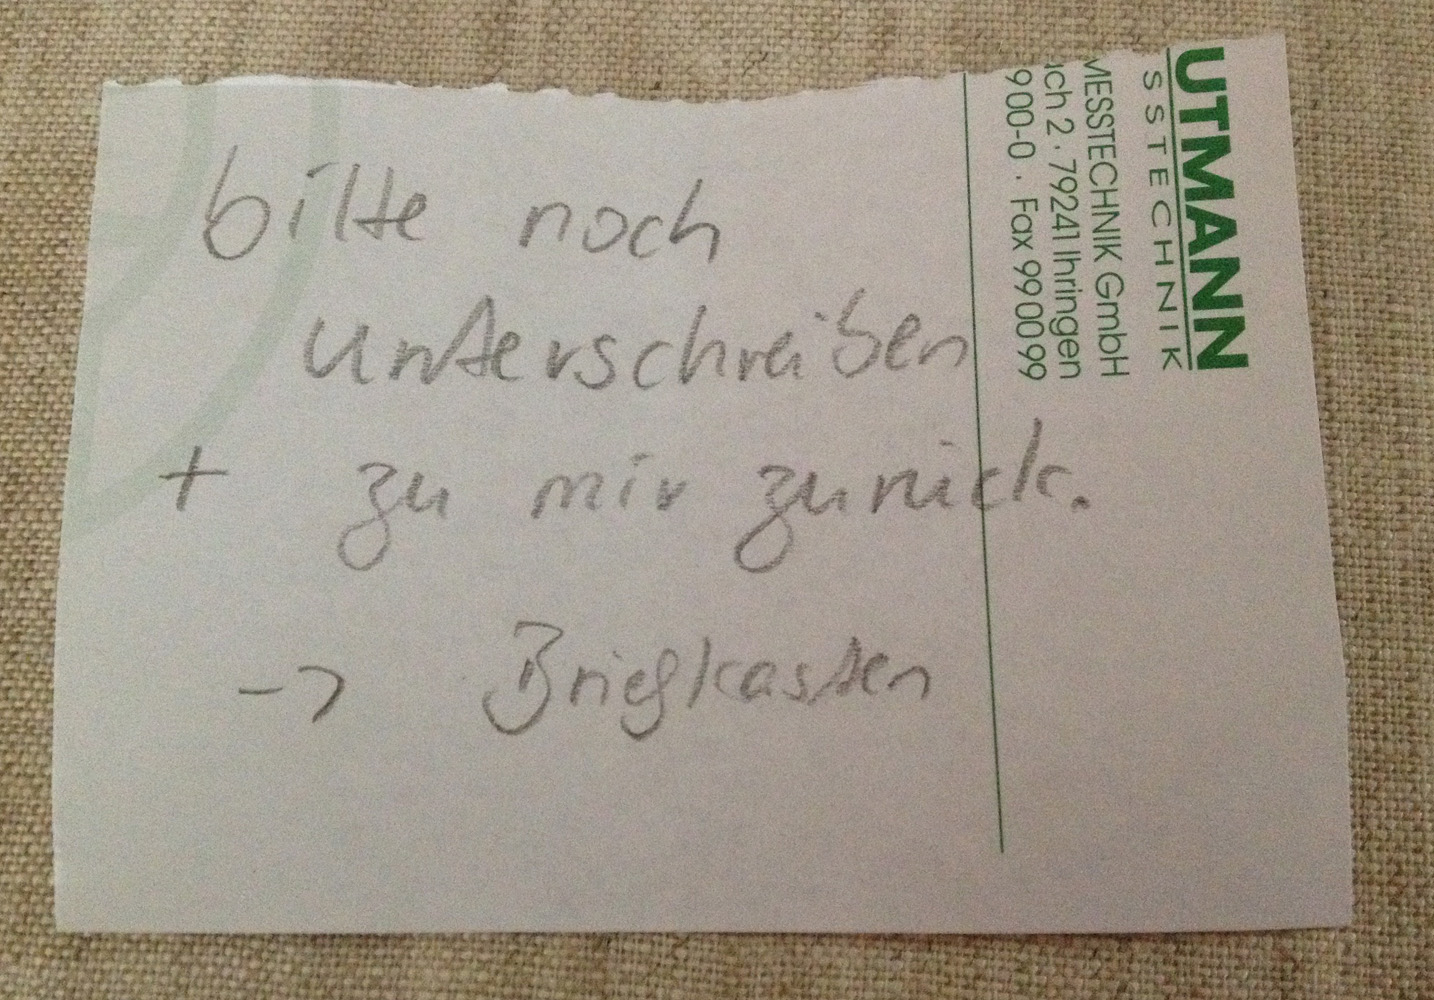 bitte noch
unterschreiben
+ zu mir zurück.
-> Briefkasten
UTMANN
SSTECHNIK
MESSTECHNIK GmbH
ch 2 · 79241 Ihringen
900-0 · Fax 990099